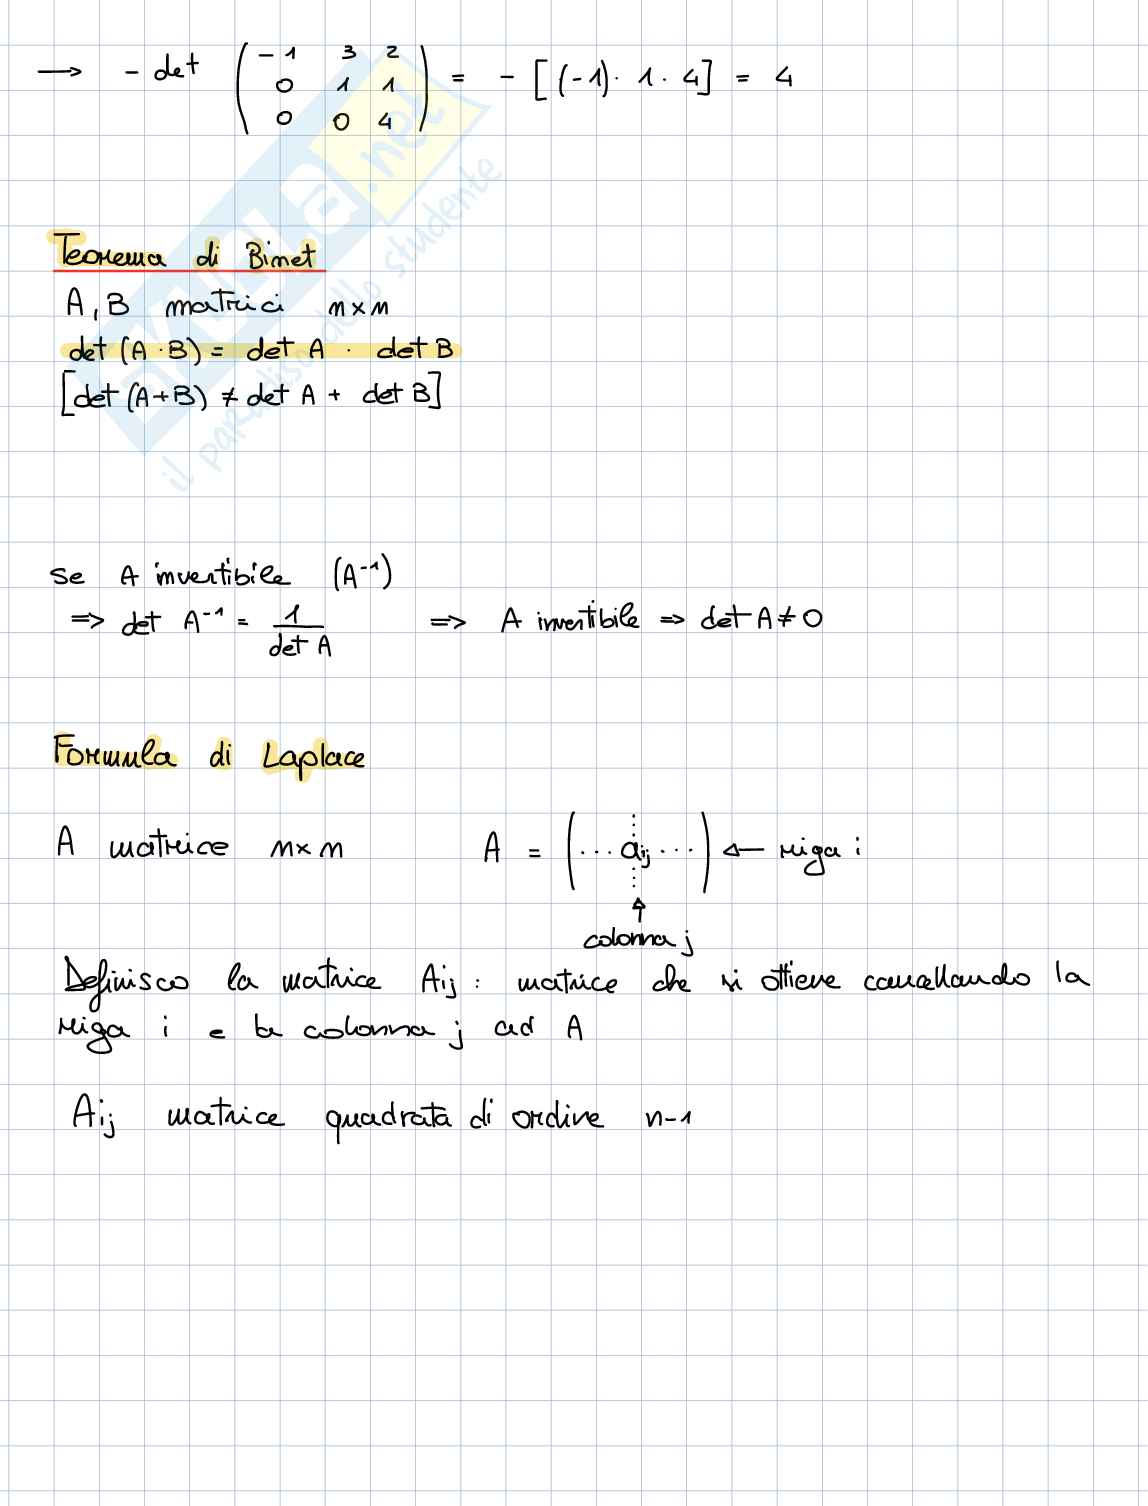 → - det ( -1 3 2 ; 0 1 1 ; 0 0 4 ) = - [(-1) · 1 · 4] = 4
Teorema di Binet
A, B matrici n×n
det (A · B) = det A · det B
[det (A+B) ≠ det A + det B]
Se A invertibile (A⁻¹)
⇒ det A⁻¹ = 1 / det A ⇒ A invertibile ⇒ det A ≠ 0
Formula di Laplace
A matrice n×n A = (... aij ...) ← riga i
colonna j
Definisco la matrice Aij : matrice che si ottiene cancellando la
riga i e la colonna j ad A
Aij matrice quadrata di ordine n-1
.net
il paradiso dello studente